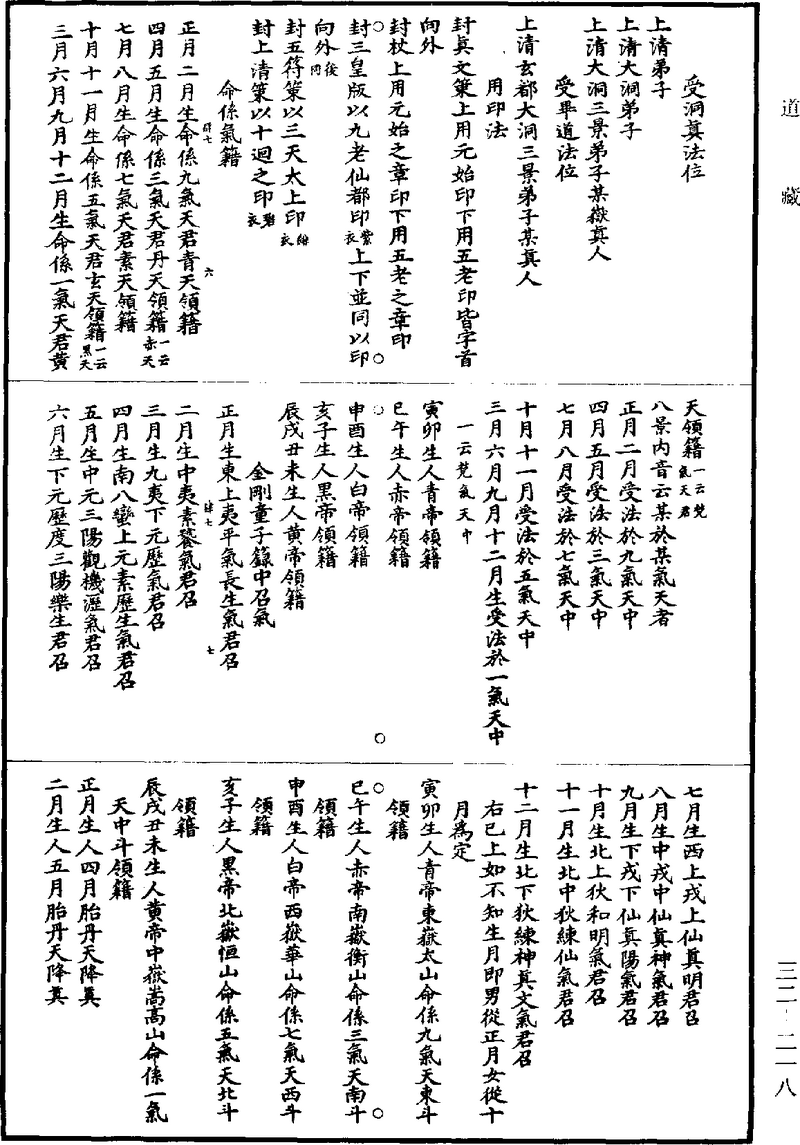 道藏
受洞真法位
上清弟子
上清大洞弟子
上清大洞三景弟子某嶽真人
受畢道法位
上清玄都大洞三景弟子某真人
用印法
封真文筞上用元始印下用五老印皆字首
向外
封杖上用元始之章印下用五老之章印
封三皇版以九老仙都印紫衣上下並同以印
向外後同
封五符筞以三天太上印衣
封上清筞以十迴之印碧衣
命係氣籍
正月二月生命係九氣天君青天領籍
四月五月生命係三氣天君丹天領籍一云赤天
七月八月生命係七氣天君素天領籍
十月十一月生命係五氣天君玄天領籍一云黑天
三月六月九月十二月生命係一氣天君黃
肆七
六
天領籍一云梵氣天君
八景內音云某於某氣天者
正月二月受法於九氣天中
四月五月受法於三氣天中
七月八月受法於七氣天中
十月十一月受法於五氣天中
三月六月九月十二月生受法於一氣天中
一云梵氣天中
寅卯生人青帝領籍
巳午生人赤帝領籍
申酉生人白帝領籍
亥子生人黑帝領籍
辰戌丑未生人黃帝領籍
金剛童子籙中召氣
正月生東上夷平氣長生氣君召
二月生中夷素餐氣君召
三月生九夷下元歷氣君召
四月生南八蠻上元素歷生氣君召
五月生中元三陽觀機瀝氣君召
六月生下元歷度三陽樂生君召
肆七
七
七月生西上戎上仙真明君召
八月生中戎中仙真神氣君召
九月生下戎下仙真陽氣君召
十月生北上狄和明氣君召
十一月生北中狄練仙氣君召
十二月生北下狄練神真文氣君召
右已上如不知生月即男從正月女從十
月為定
寅卯生人青帝東嶽太山命係九氣天東斗
領籍
巳午生人赤帝南嶽衡山命係三氣天南斗
領籍
申酉生人白帝西嶽華山命係七氣天西斗
領籍
亥子生人黑帝北嶽恒山命係五氣天北斗
領籍
辰戌丑未生人黃帝中嶽嵩高山命係一氣
天中斗領籍
正月生人四月胎丹天降炁
二月生人五月胎丹天降炁
三二－二一八